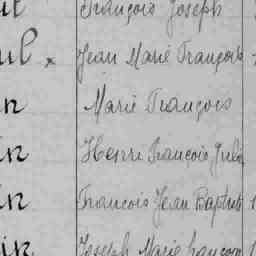 François Joseph
Jean Marie François
Marie François
Henri François Jules
François Jean Baptiste
Joseph Marie François